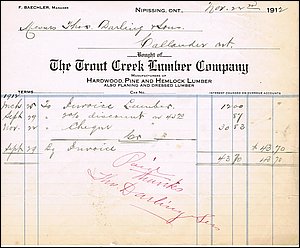 F. BAECHLER, MANAGER
NIPISSING, ONT. Nov. 22nd 1912
Messrs Thos. Darling & Sons.
Callander Ont.
Bought of
The Trout Creek Lumber Company
MANUFACTURERS OF
HARDWOOD, PINE AND HEMLOCK LUMBER
ALSO PLANING AND DRESSED LUMBER
CAR NO.
TERMS INTEREST CHARGED ON OVERDUE ACCOUNTS
1912
25 To Invoice Lumber. 1200
Sept 29 " 2% discount 87
Nov. 22 " Cheque 30 83
Sept 29 By Invoice 43.70
43 70 43 70
Paid
Thanks
Thos Darling & Sons